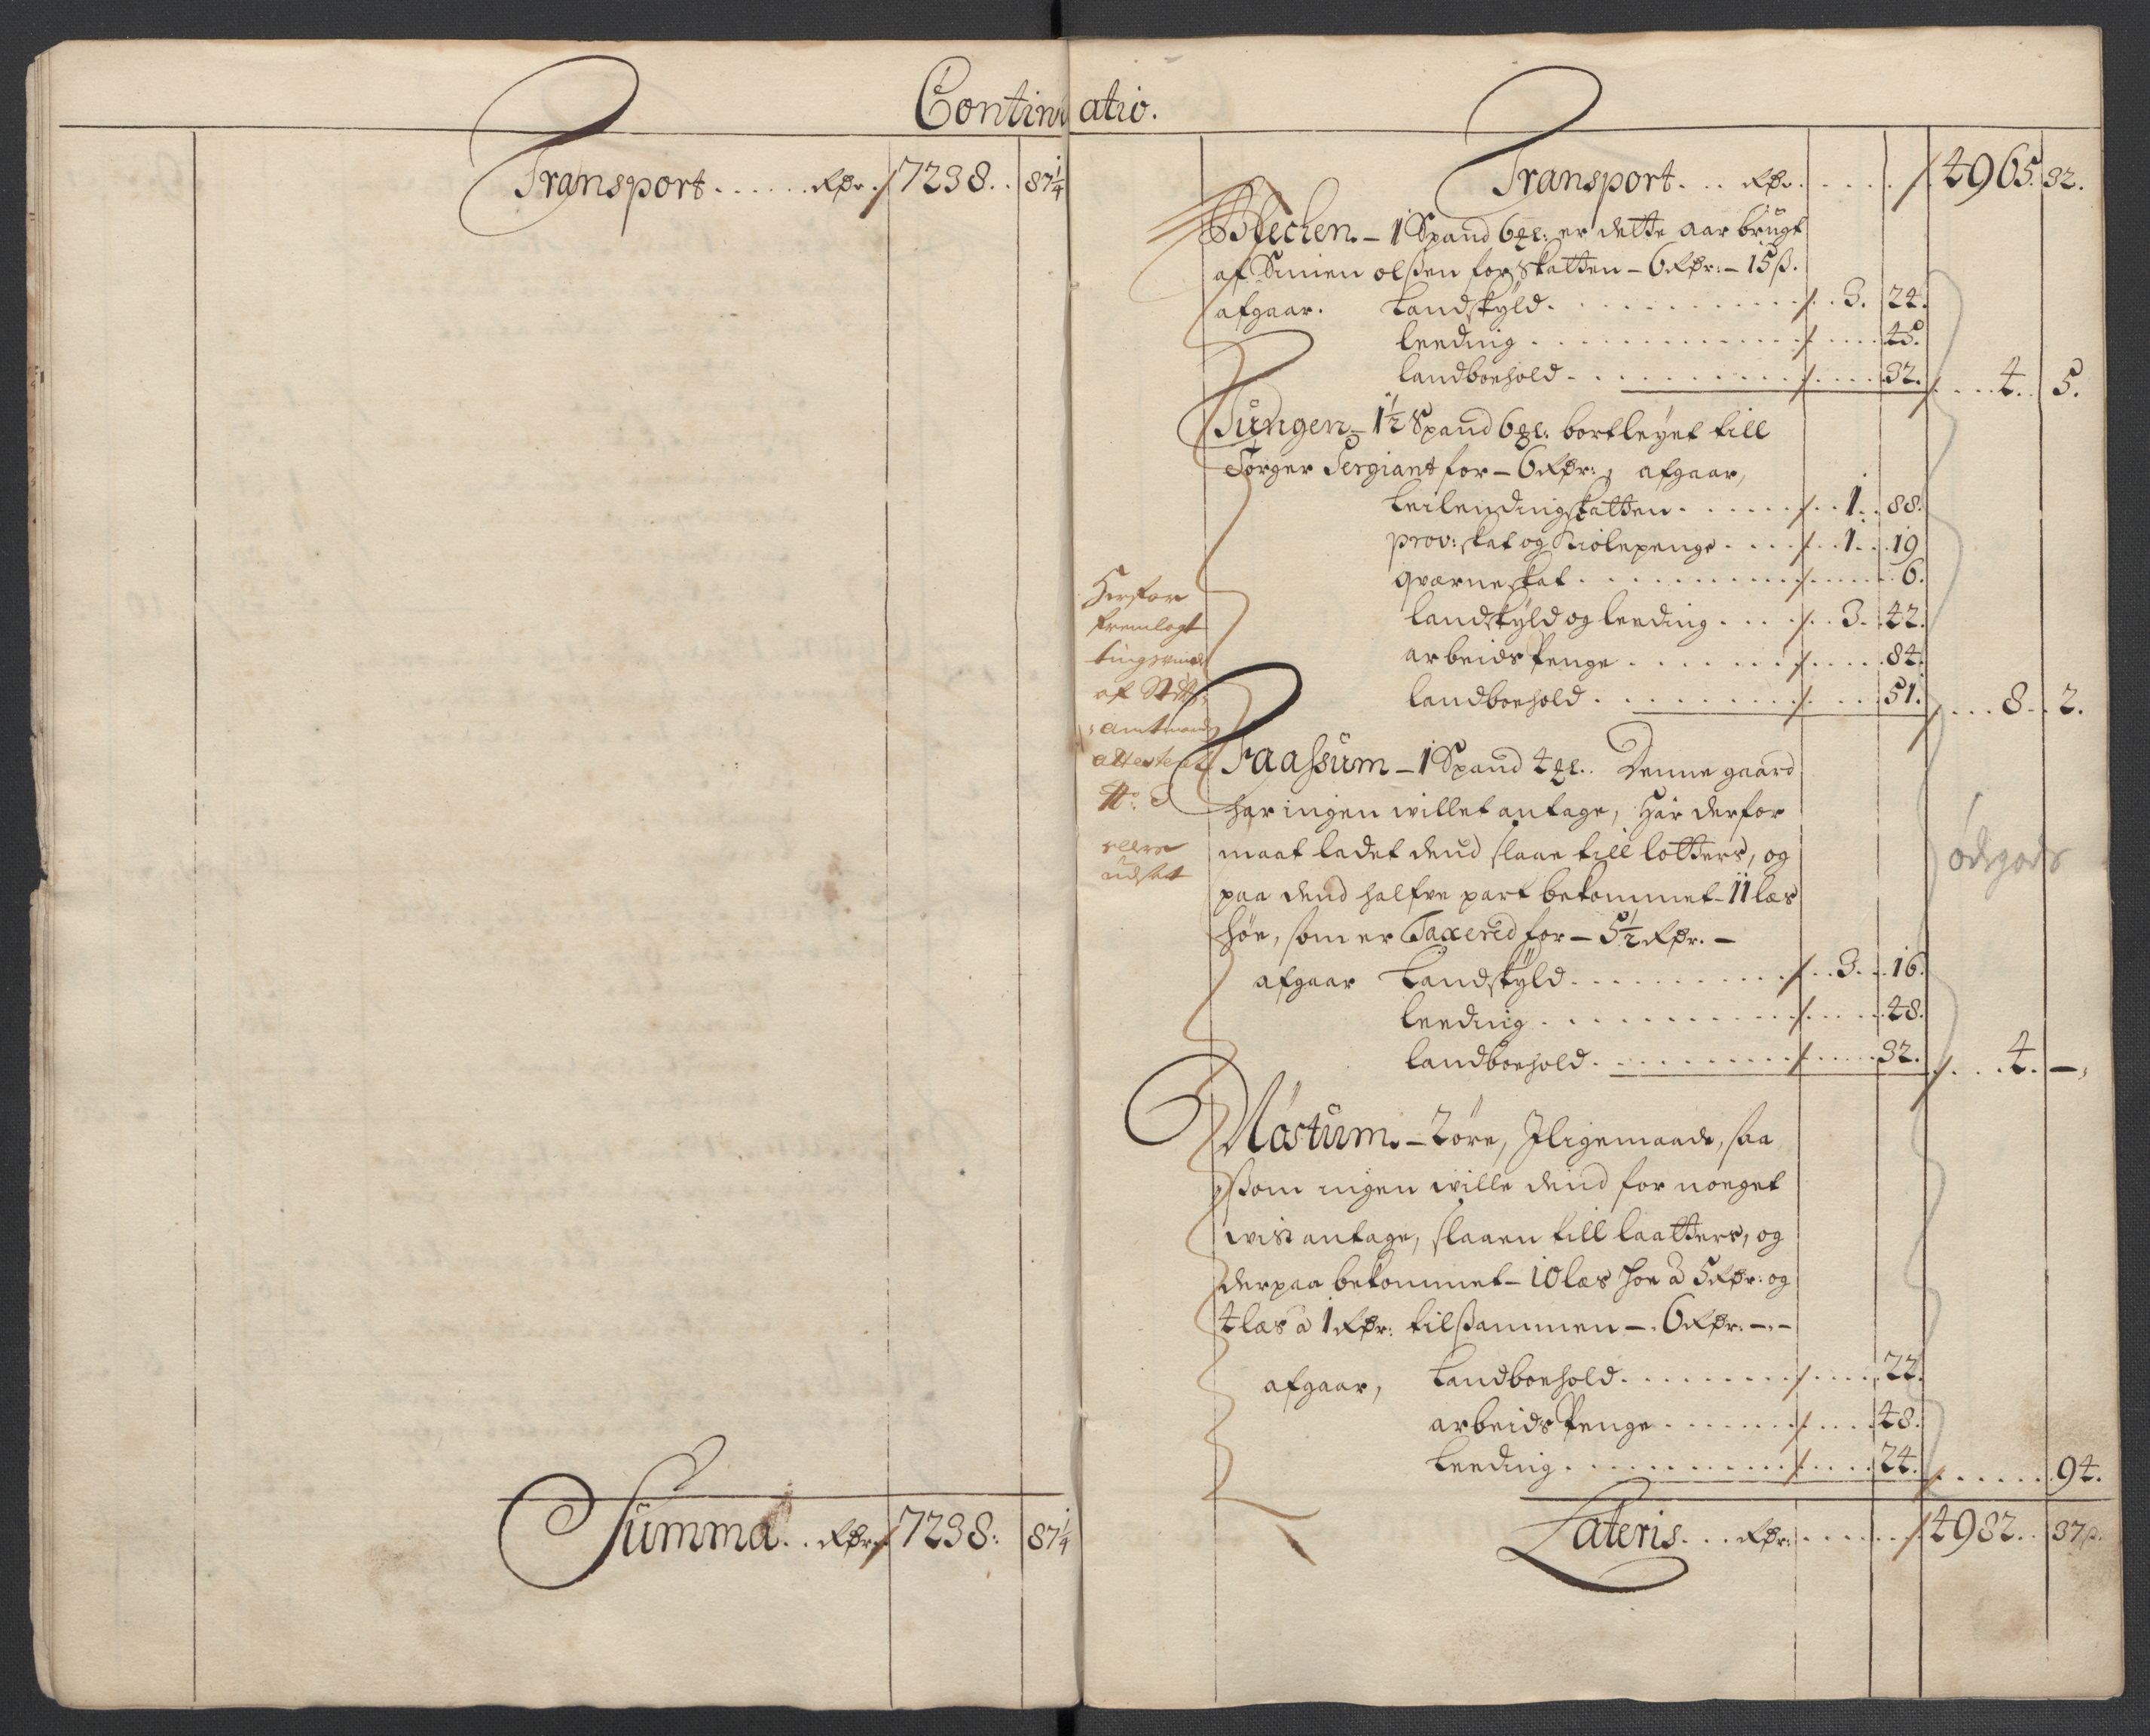 Continuatio.
Transport ...... Rdr. 7238.. 87 1/4
Summa .. Rdr. 7238: 87 1/4
Transport ... Rdr. .... 4965. 32.
1 Spand 6 ℔: er dette aar brugt
af Simen olßen for Skatten – 6 Rdr: – 15 ß.
afgaar. Landskyld ........ 3. 24.
leeding ........ 45.
landboehold ........ 32. .... 4. 5.
Tungen – 1 1/2 Spand 6 ℔: bortleyet till
Sergiant for – 6 Rdr: afgaar,
Leilendingskatten ...... 1. 88.
prov: skat og Kiolepenge .... 1. 19
qværneskat ........ 6.
landskyld og leeding .... 3. 42.
arbeids Penge ...... 84.
landboehold ........ 51. .... 8. 2.
Herfor
fremlagt
tingsvinde
af Stift
amtmand
attesteret
No:
ellers
udsat
Faaßum – 1 Spand 4 ℔. Denne gaard
har ingen willet antage, Har derfor
maat ladet dend slaae till lotters, og
paa dend halfve part bekommet – 11 læs
høe, som er Taxered for – 5 1/2 Rdr. –
ødegods
afgaar Landskyld ........ 3. 16.
leeding ........ 48.
landboehold ........ 32. .... 4. –,
Nøstum. – 2 øre, Iligemaade, saa
ßom ingen wille dend for noeget
wist antage, slaaen till laatters, og
derpaa bekommet – 10 læs hoe à 5 Rdr: og
4 læs à 1 Rdr: tilßammen – 6 Rdr. –.–
afgaar, Landboehold ........ 22.
arbeids Penge ...... 48.
Leeding ........ 24. .... 94.
Lateris ... Rdr: .... 4982.. 37 ß.